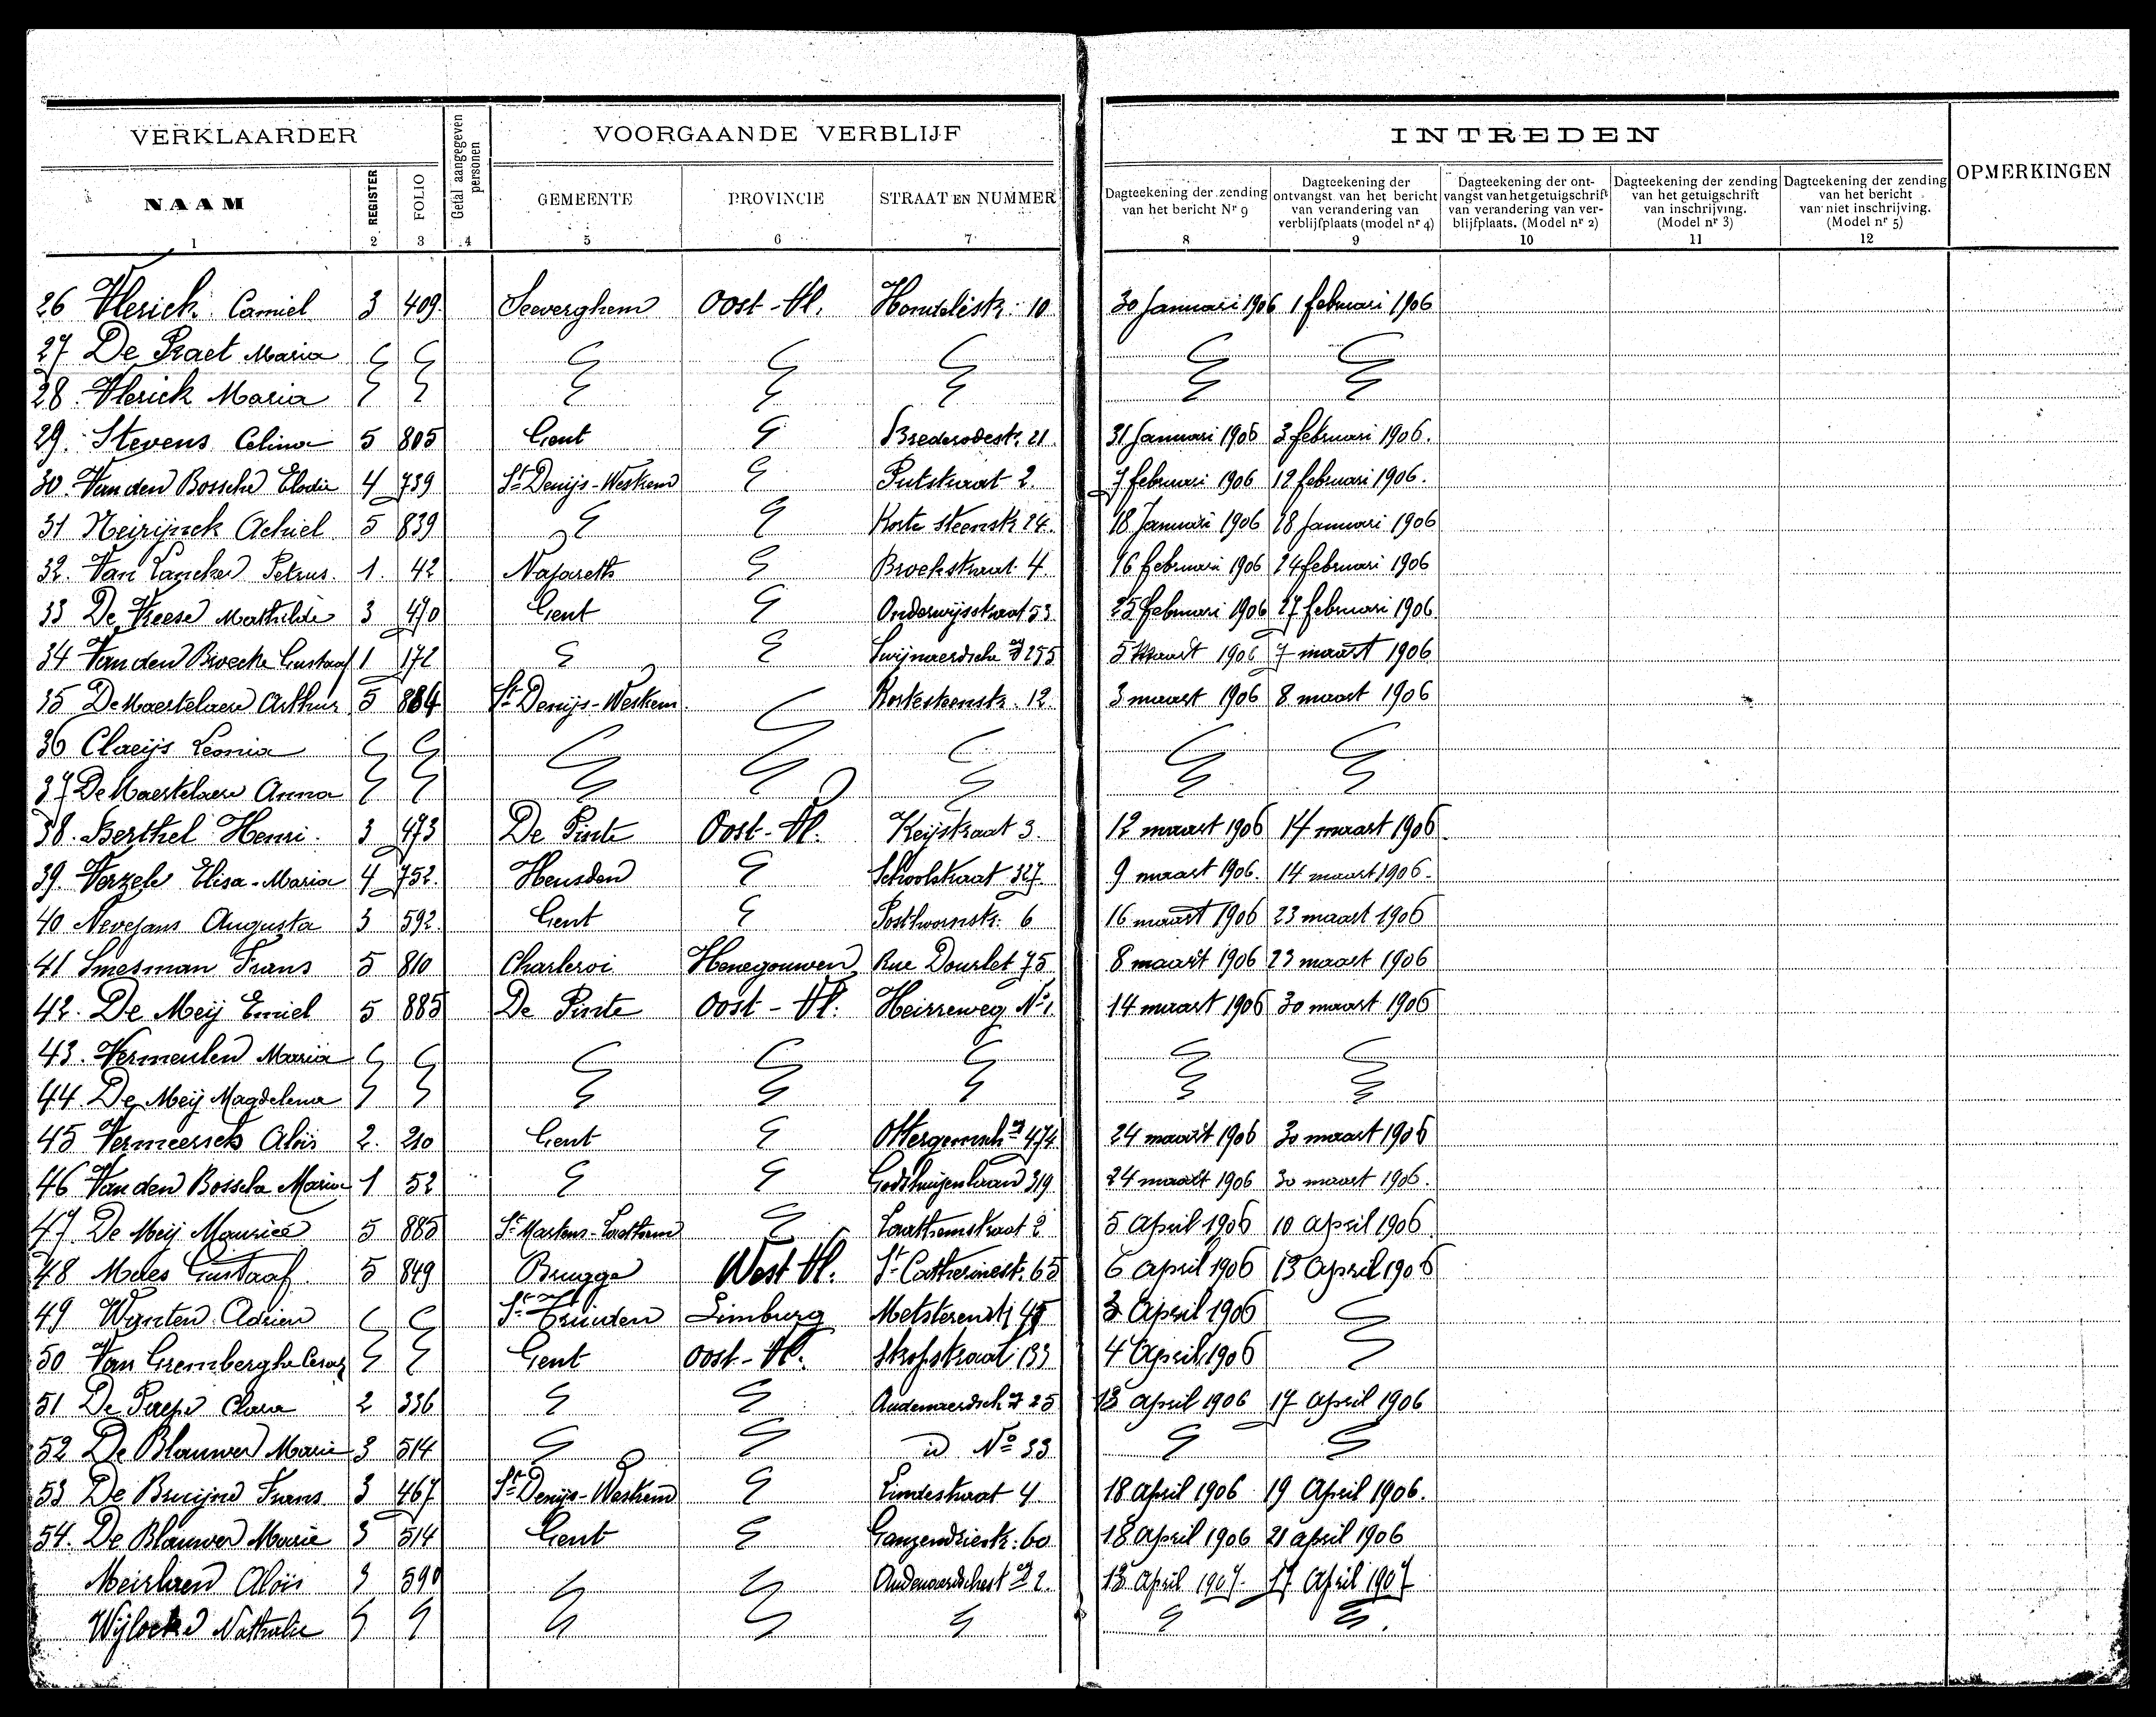 VERKLAARDER Getal aangegeven personen VOORGAANDE VERBLIJF INTREDEN OPMERKINGEN
NAAM REGISTER FOLIO GEMEENTE PROVINCIE STRAAT EN NUMMER Dagteekening der zending van het bericht Nr 9 Dagteekening der ontvangst van het bericht van verandering van verblijfplaats (model nr 4) Dagteekening der ontvangst van het getuigschrift van verandering van verblijfplaats. (Model nr 2) Dagteekening der zending van het getuigschrift van inschrijving. (Model nr 3) Dagteekening der zending van het bericht van niet inschrijving. (Model nr 5)
1 2 3 4 5 6 7 8 9 10 11 12
26 Vlerick Camiel 3 409 Seeverghem Oost-Vl. 10 30 Januari 1906 1 februari 1906
27 De Praet Maria
28 Vlerick Maria
29. Stevens Celina 5 805 Gent Brederodestr. 21 31 Januari 1906 3 februari 1906.
30 Van den Bossche Elodie 4 739 St Denijs-Westrem Putstraat 2. 7 februari 1906 12 februari 1906.
31 Neirijnck Achiel 5 839 Korte steenstr 24. 18 Januari 1906 28 Januari 1906
32. Van Lancker Petrus. 1. 42 Nazareth Broekstraat 4. 16 februari 1906 24 februari 1906
33 De Vreese Mathilde 3 470 Gent Onderwijsstraat 53 25 februari 1906 27 februari 1906
34 Van den Broecke Gustaaf 1 172 Swijnaerdsche 255 5 Maart 1906 7 maart 1906
35 De Maertelaere Arthur 5 884 St Denijs-Westrem Kortesteenstr. 12. 3 maart 1906 8 maart 1906
36 Claeijs Leonia
37 De Maertelaere Anna
38. Berthel Henri. 3 473 De Pinte Oost-Vl. Keijstraat 3. 12 maart 1906 14 maart 1906
39. Verzele Elisa-Maria 4 752. Heusden Schoolstraat 327. 9 maart 1906. 14 maart 1906.
40 Nevejans Augusta 3 592. Gent Posthoornstr. 6 16 maart 1906 23 maart 1906
41 Smesman Frans 5 810 Charleroi Henegouwen Rue Dourlet 75 8 maart 1906 23 maart 1906
42. De Meij Emiel 5 885 De Pinte Oost-Vl. Heirreweg No 1. 14 maart 1906 30 maart 1906
43. Vermeulen Maria
44. De Meij Magdelena
45 Vermeersch Aloïs 2. 210 Gent 474 24 maart 1906 30 maart 1906
46 Van den Bossche Maria 1 52 Godshuijzenlaan 319 24 maart 1906 30 maart 1906.
47. De Meij Maurice 5 885 St Martens-Laethem Laethemstraat 2 5 April 1906 10 April 1906
48 Maes Gustaaf. 5 849 Brugge West Vl. St Catherinestr. 65 6 april 1906 13 April 1906
49 Wijnten Adrien St Truiden Limburg 45 3 April 1906
50 Van Gremberghe Gent Oost-Vl. Stropstraat 133 4 April 1906
51 De Paepe Clara 2 336 Audenaerdsch 25 13 april 1906 17 april 1906
52 De Blauwer Marie 3 514 id No 33
53 De Bruijne Frans 3 467 St Denijs-Westrem Lindestraat 4. 18 april 1906 19 April 1906.
54. De Blauwer Marie 3 514 Gent Ganzendriestr. 60 18 april 1906 21 april 1906
Meirlaen Aloïs 3 590 2. 13 april 1907. 17 April 1907
Wijlocke Nathalie